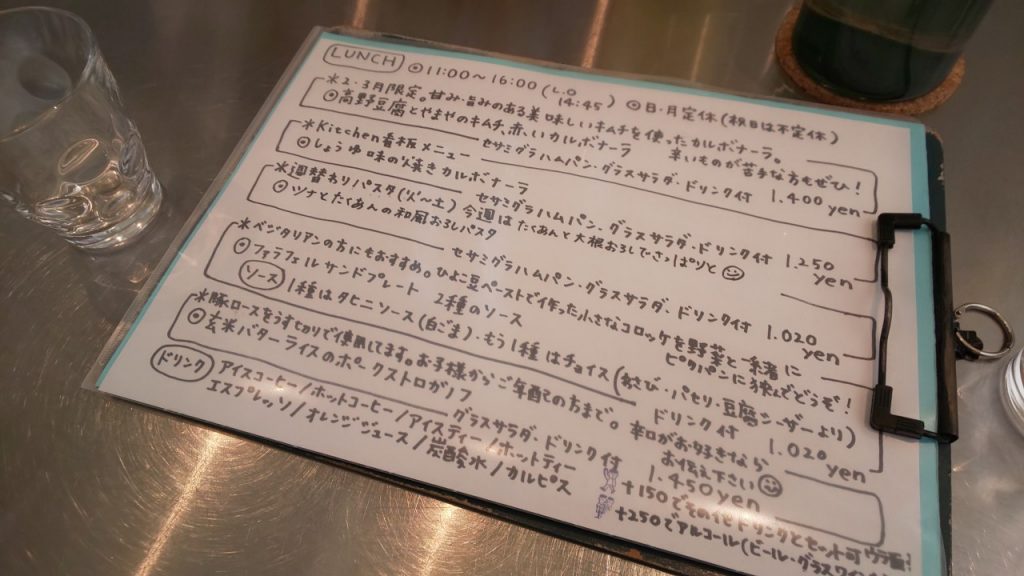 LUNCH ◎11:00〜16:00(L.O 14:45) ◎日・月定休(祝日は不定休)
*2・3月限定。甘み・旨みのある美味しいキムチを使ったカルボナーラ。辛いものが苦手な方もぜひ!
◎高野豆腐とやませのキムチ、赤いカルボナーラ
セサミグラハムパン・グラスサラダ・ドリンク付 1.400yen
*Kitchen看板メニュー
◎しょうゆ味のり焼きカルボナーラ
セサミグラハムパン・グラスサラダ・ドリンク付 1.250yen
*週替わりパスタ(火〜土) 今週は たくあんと大根おろしでさっぱりと☺
◎ツナとたくあんの和風おろしパスタ
セサミグラハムパン・グラスサラダ・ドリンク付 1.020yen
*ベジタリアンの方にもおすすめ。ひよこ豆ペーストで作った小さなコロッケを野菜と一緒にピタパンに挟んでどうぞ!
◎ファラフェルサンドプレート 2種のソース
ソース 1種はタヒニソース(白ごま)・もう1種はチョイス(・パセリ・豆腐シーザーより)
ドリンク付 1.020yen
*豚ロースをうす切りで使用してます。お子様からご年配の方まで。辛口がお好きならお伝え下さい☺
◎玄米バターライスのポークストロガノフ
グラスサラダ・ドリンク付 1.450yen
ドリンク アイスコーヒー/ホットコーヒー/アイスティー/ホットティー
エスプレッソ/オレンジジュース/炭酸水/カルピス
+150でその他ドリンクとセット可 ウラ面
+250でアルコール(ビール・グラスワ